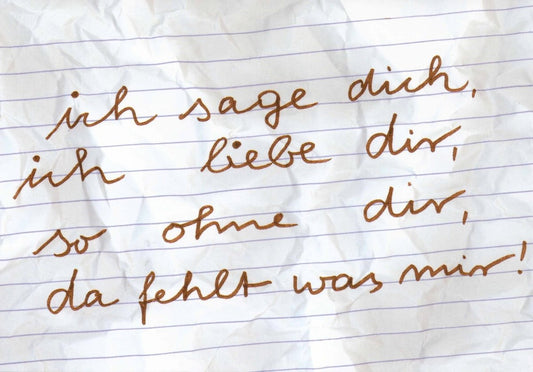 ich sage dich,
ich liebe dir,
so ohne dir,
da fehlt was mir!